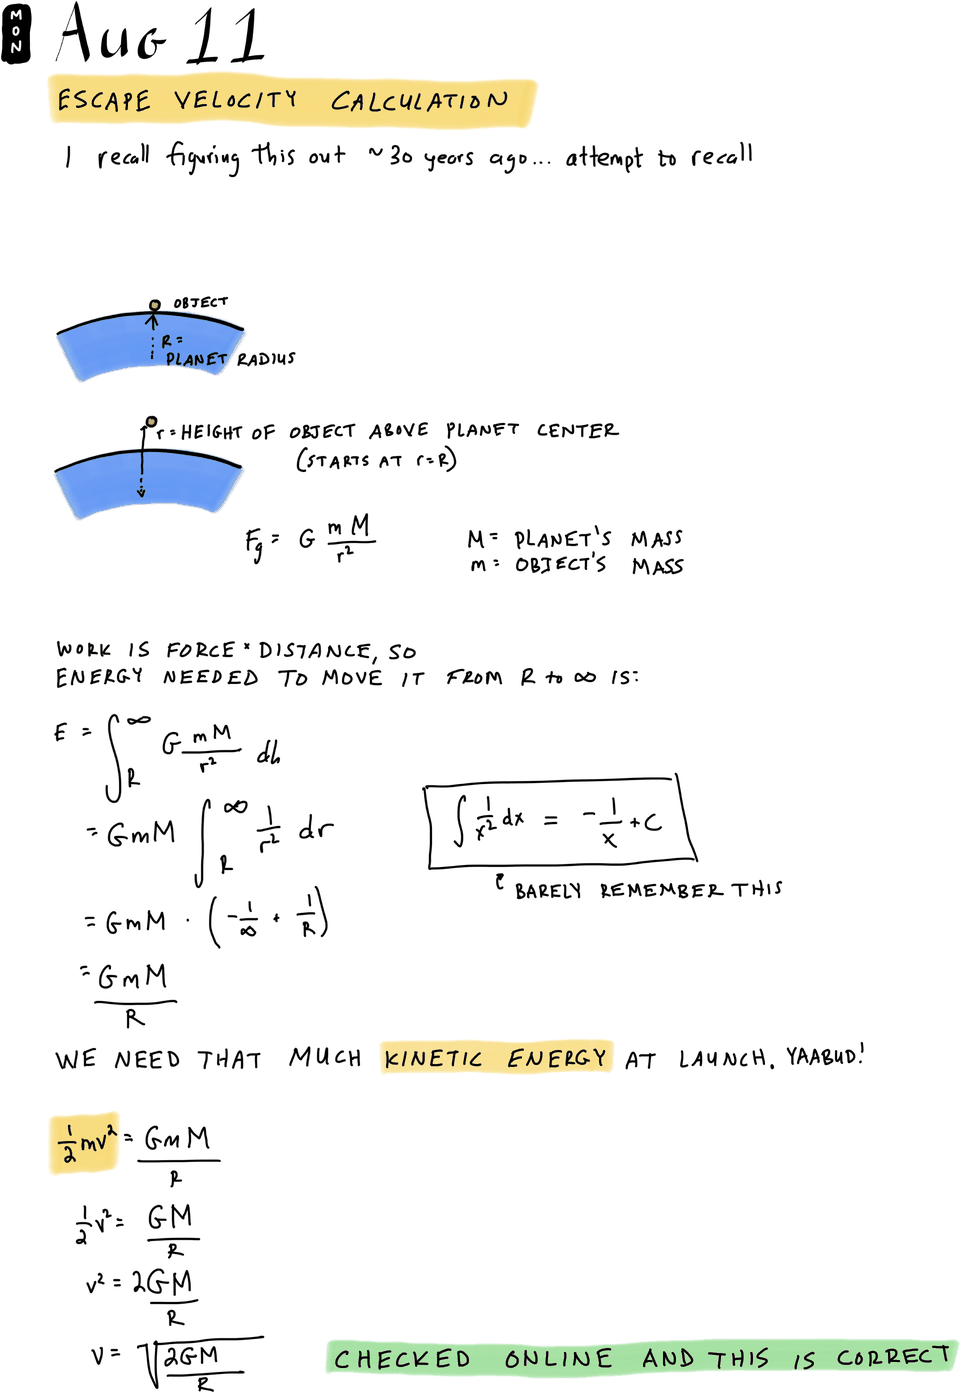 MON
Aug 11
ESCAPE VELOCITY CALCULATION
I recall figuring this out ~30 years ago... attempt to recall
OBJECT
R =
PLANET RADIUS
r = HEIGHT OF OBJECT ABOVE PLANET CENTER
(STARTS AT r=R)
F_g = G mM/r²
M = PLANET'S MASS
m = OBJECT'S MASS
WORK IS FORCE * DISTANCE, SO
ENERGY NEEDED TO MOVE IT FROM R to ∞ IS:
E = ∫_R^∞ G mM/r² dh
= GmM ∫_R^∞ 1/r² dr
∫ 1/x² dx = -1/x + C
BARELY REMEMBER THIS
= GmM · (-1/∞ + 1/R)
= GmM/R
WE NEED THAT MUCH KINETIC ENERGY AT LAUNCH. YAABUD!
1/2 mv² = GmM/R
1/2 v² = GM/R
v² = 2GM/R
V = √(2GM/R)
CHECKED ONLINE AND THIS IS CORRECT